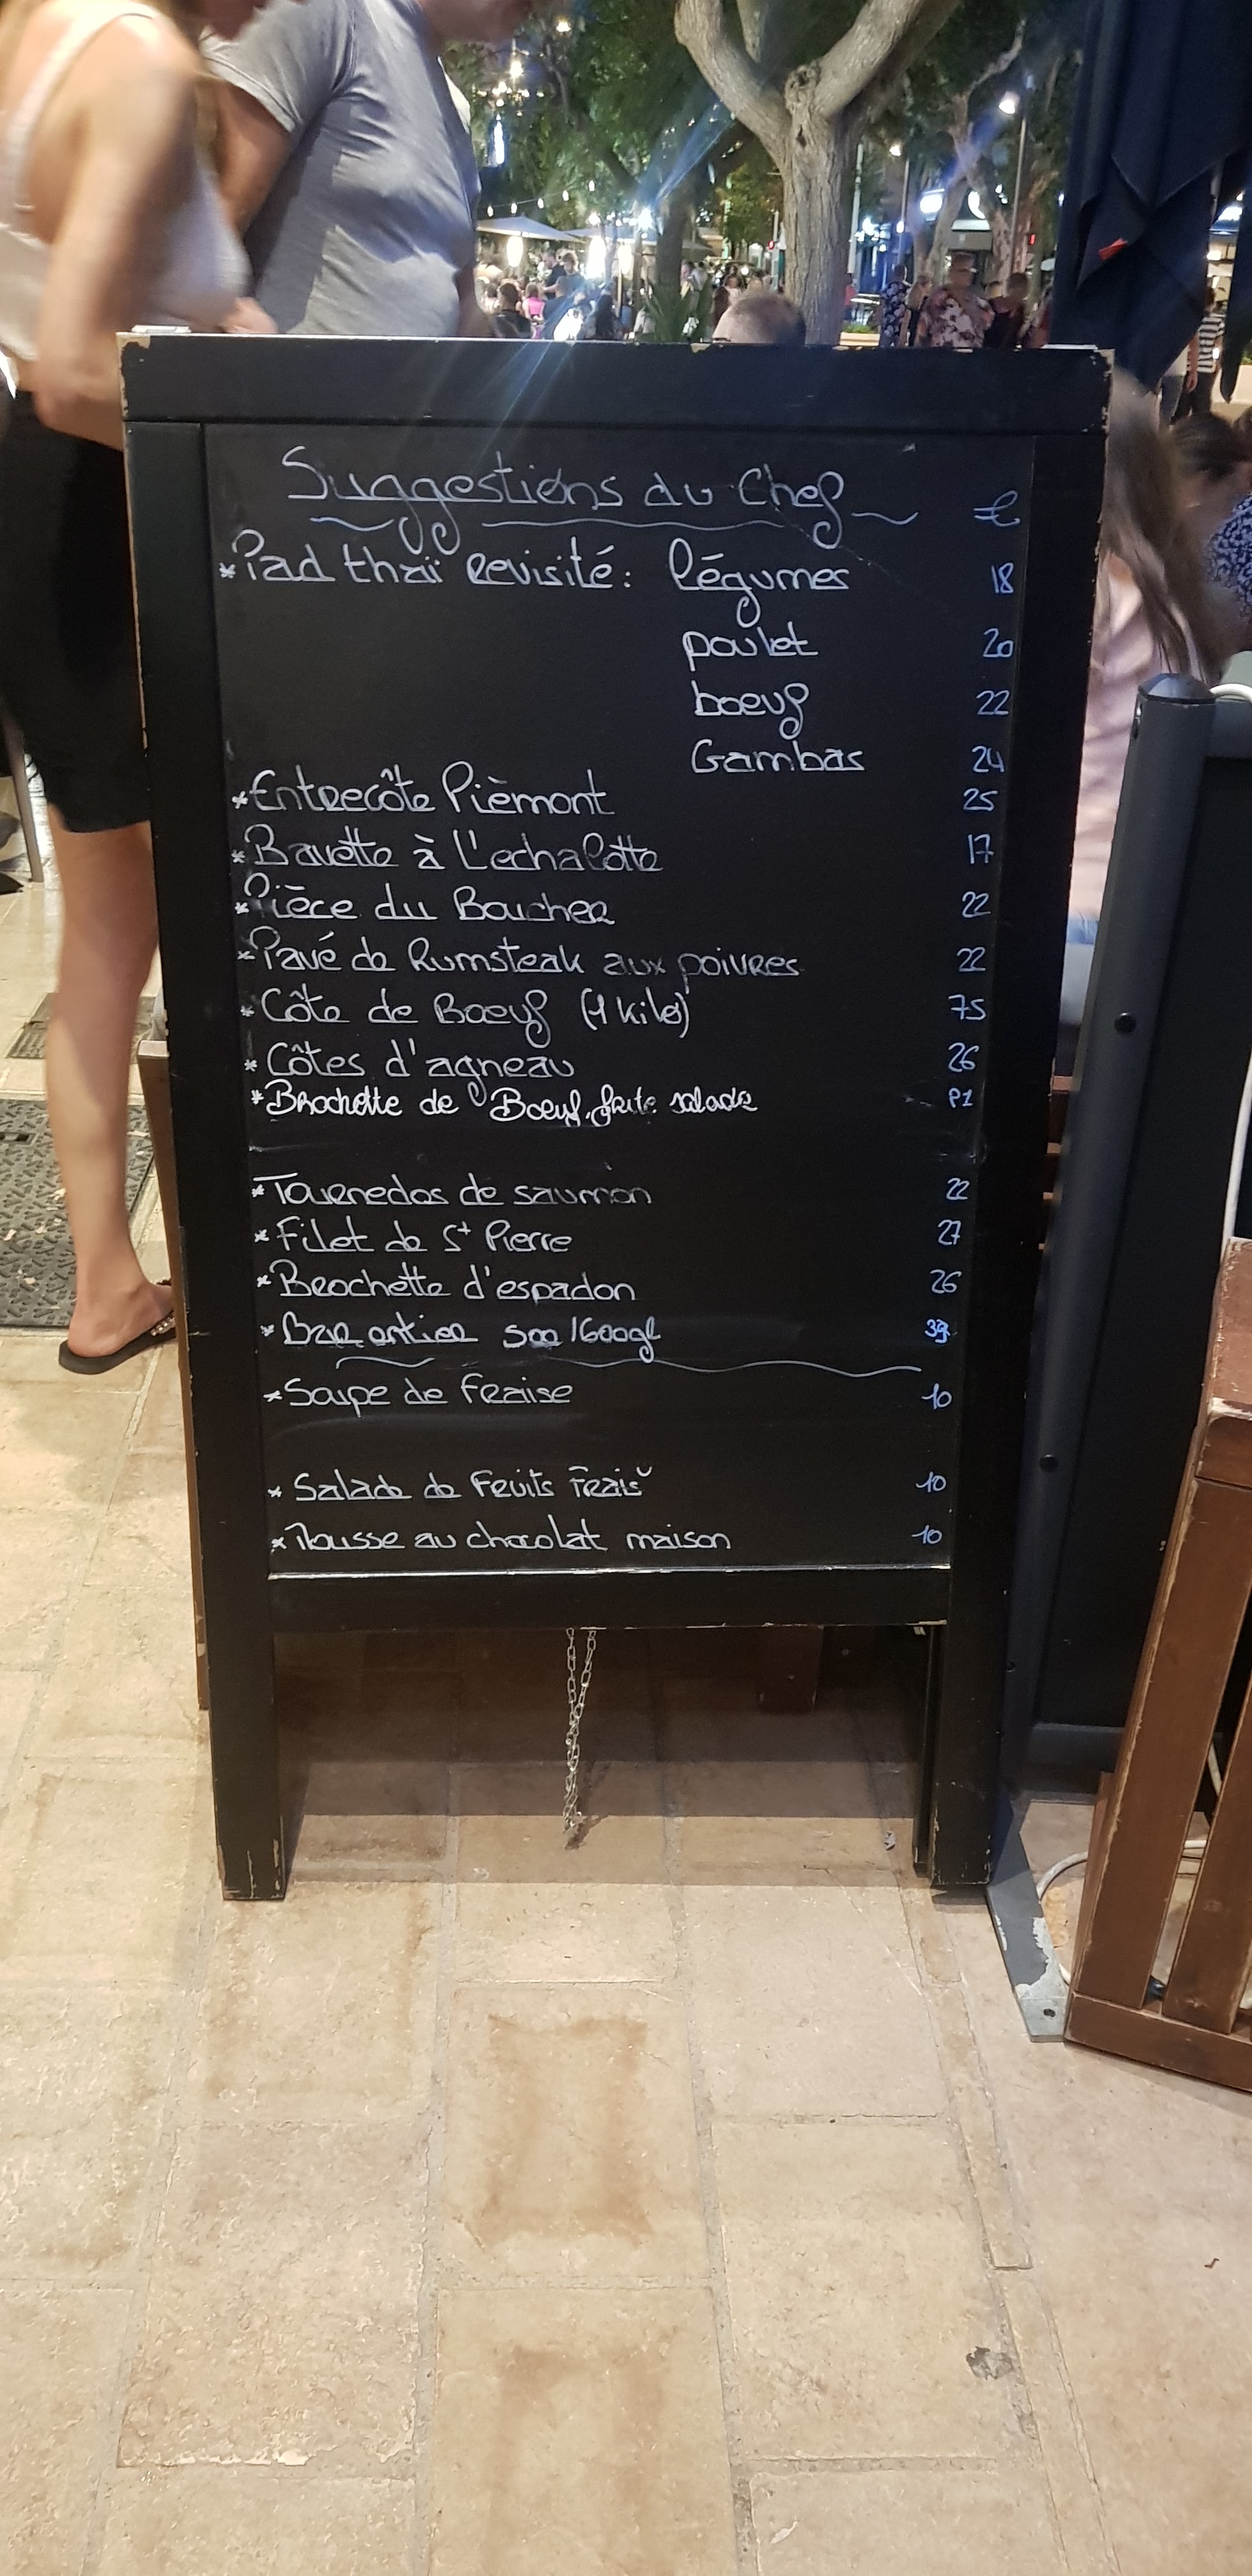 Suggestions du Chef €
*Pad thaï revisité: légumes 18
poulet 20
boeuf 22
Gambas 24
*Entrecôte Pièmont 25
*Bavette à L'echalotte 17
*Pièce du Boucher 22
*Pavé de Rumsteak aux poivres 22
*Côte de Boeuf (1 kilo) 75
*Côtes d'agneau 26
*Brochette de Boeuf, frite salade
*Tournedos de saumon 22
*Filet de St Pierre 27
*Brochette d'espadon 26
*Bar entier 500/600g 39
*Soupe de Fraise 10
*Salade de Fruits Frais 10
*Mousse au chocolat maison 10